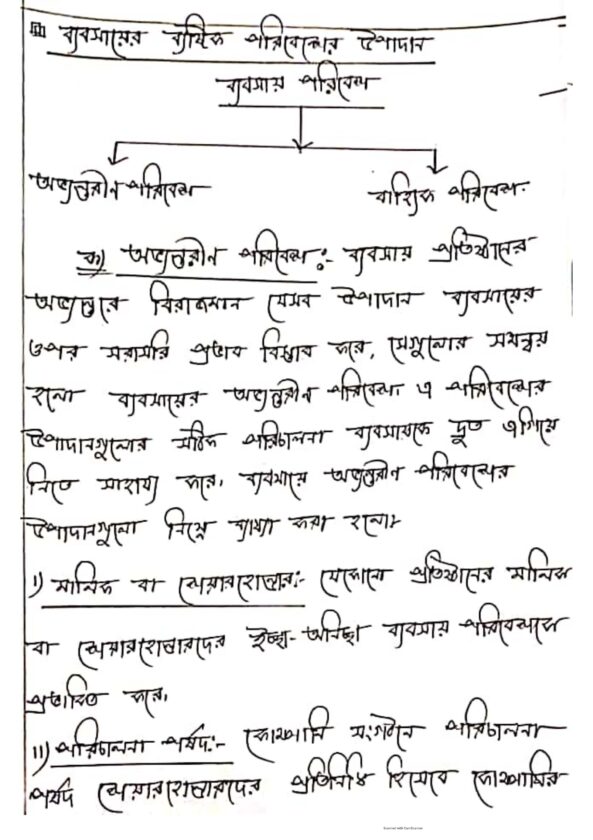 ব্যবসায়ের বাহ্যিক পরিবেশের উপাদান
ব্যবসায় পরিবেশ
অভ্যন্তরীন পরিবেশ বাহ্যিক পরিবেশ
ক) অভ্যন্তরীন পরিবেশ:- ব্যবসায় প্রতিষ্ঠানের
অভ্যন্তরে বিরাজমান যেসব উপাদান ব্যবসায়ের
ওপর সরাসরি প্রভাব বিস্তার করে, সেগুলোর সমন্বয়
হলো ব্যবসায়ের অভ্যন্তরীন পরিবেশ। এ পরিবেশের
উপাদানগুলোর সঠিক পরিচালনা ব্যবসায়কে দ্রুত এগিয়ে
নিতে সাহায্য করে। ব্যবসায়ে অভ্যন্তরীন পরিবেশের
উপাদানগুলো নিম্নে ব্যাখ্যা করা হলো:
i) মালিক বা শেয়ারহোল্ডার:- যেকোনো প্রতিষ্ঠানের মালিক
বা শেয়ারহোল্ডারদের ইচ্ছা-অনিচ্ছা ব্যবসায় পরিবেশকে
প্রভাবিত করে।
ii) পরিচালনা পর্ষদ:- কোম্পানি সংগঠনে পরিচালনা
পর্ষদ শেয়ারহোল্ডারদের প্রতিনিধি হিসেবে কোম্পানির
Scanned with CamScanner